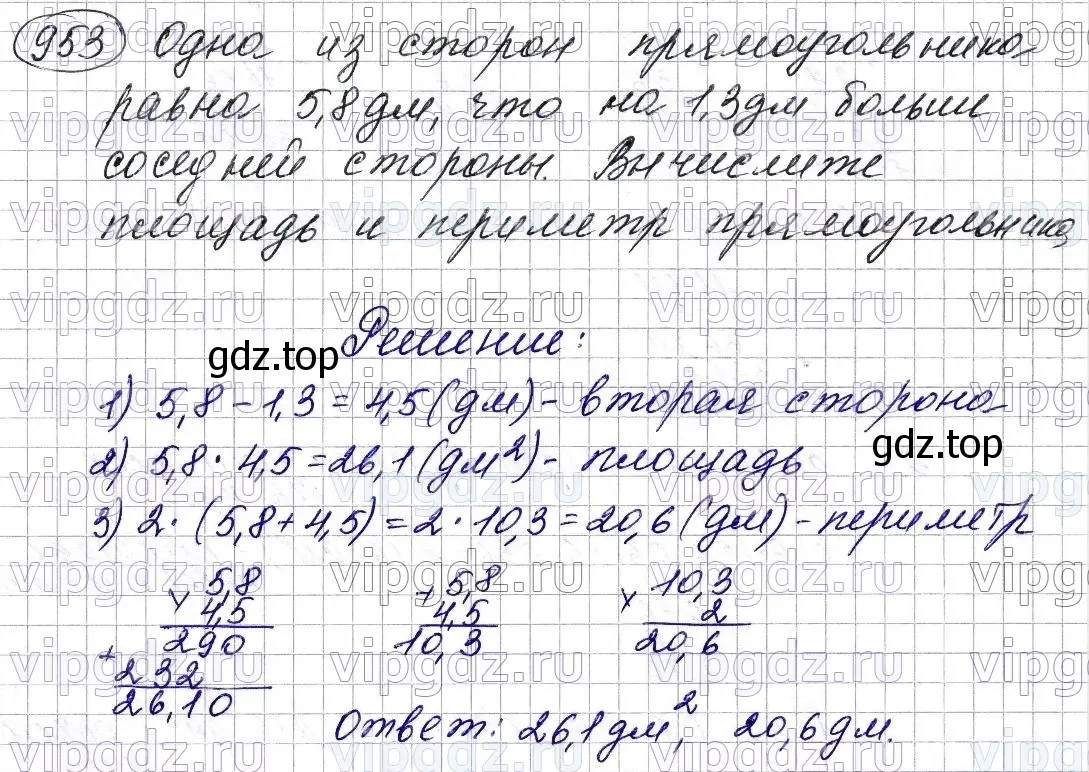 953 Одна из сторон прямоугольника
равна 5,8 дм, что на 1,3 дм больше
соседней стороны. Вычислите
площадь и периметр прямоугольника
Решение:
gdz.top
1) 5,8 - 1,3 = 4,5 (дм) - вторая сторона
2) 5,8 · 4,5 = 26,1 (дм²) - площадь
gdz.top
3) 2 · (5,8 + 4,5) = 2 · 10,3 = 20,6 (дм) - периметр
× 5,8 + 5,8 × 10,3
4,5 4,5 2
290 10,3 20,6
+ 232
26,10
Ответ: 26,1 дм², 20,6 дм.
vipgdz.ru